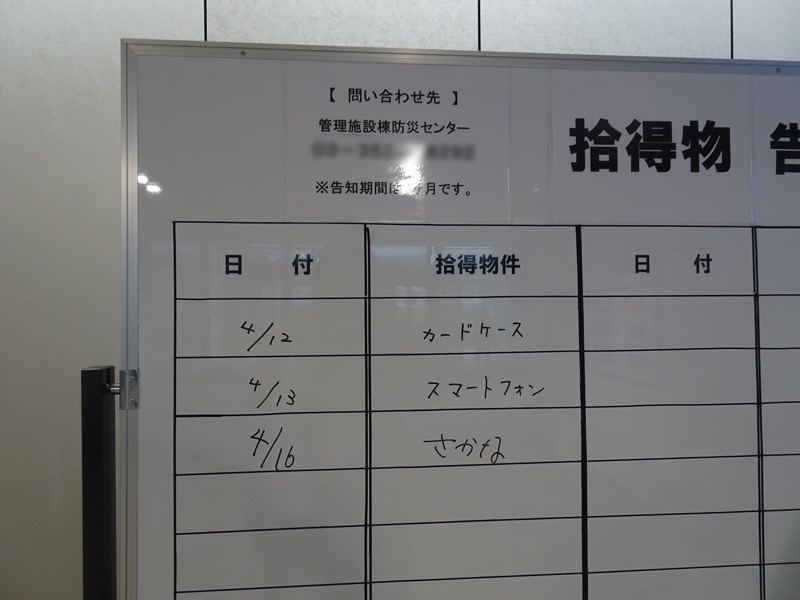 【 問い合わせ先 】
管理施設棟防災センター
※告知期間は ヶ月です。
拾得物 告
日 付 拾得物件 日 付
4/12 カードケース
4/13 スマートフォン
4/16 さかな